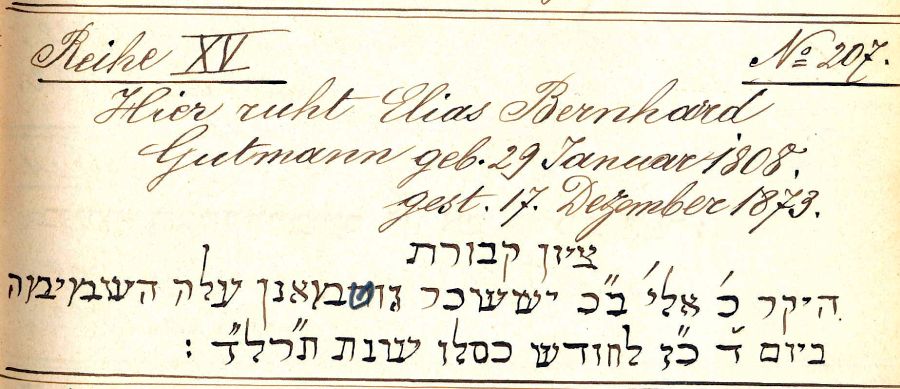 Reihe XV
No 207.
Hier ruht Elias Bernhard
Gutmann geb. 29 Januar 1808.
gest. 17. Dezember 1873.
ציון קבורת
היקר כ׳ אלי׳ ב״כ יששכר גוטמאנן עלה השמימה
ביום ד׳ כ״ז לחודש כסלו שנת תרל״ד :